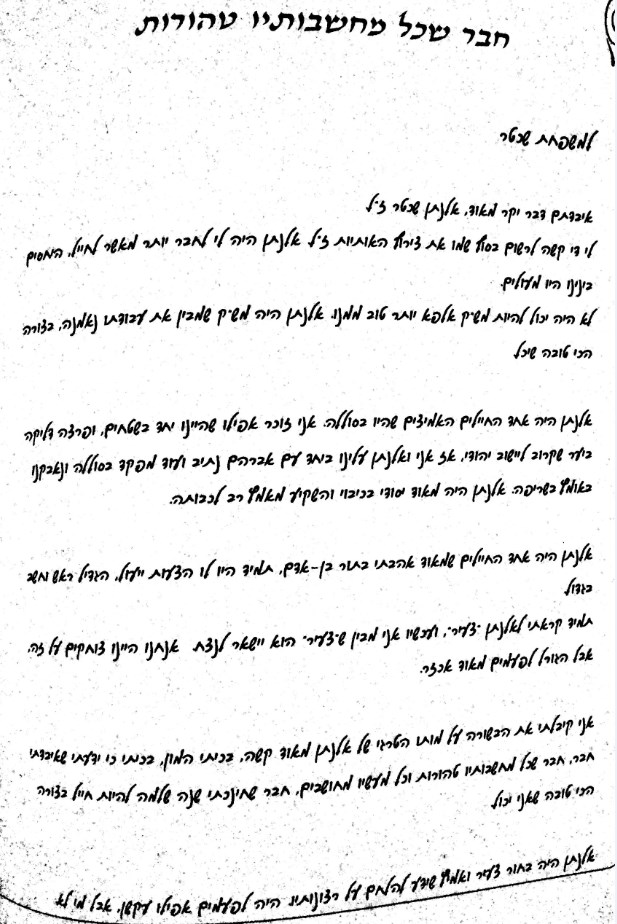 חבר שכל מחשבותיו טהורות
למשפחת שכטר
איבדתם דבר יקר מאוד, אלנתן שכטר ז"ל.
לי די קשה לרשום בסוף שמו את צירוף האותיות ז"ל. אלנתן היה לי לחבר יותר מאשר לחייל, היחסים
בינינו היו מעולים.
לא היה יכול להיות מש"ק אלפא יותר טוב ממנו. אלנתן היה מש"ק שמבין את עבודתו נאמנה, בצורה
הכי טובה שיכל.
אלנתן היה אחד החיילים האמיצים שהיו בסוללה. אני זוכר אפילו שהיינו יחד בשטחים, ופרצה דליקה
ביער שקרוב ליישוב יהודי, אז אני ואלנתן עלינו ביחד עם אברהם נתיב ועוד מפקד בסוללה ונאבקנו
באומץ בשריפה. אלנתן היה מאוד יסודי בכיבוי והשקיע מאמץ רב לכבותה.
אלנתן היה אחד החיילים שמאוד אהבתי בתור בן-אדם, תמיד היו לו הצעות ייעול, הגדיל ראש וחשב
בגדול.
תמיד קראתי לאלנתן "צעיר", ועכשיו אני מבין ש"צעיר" הוא יישאר לנצח. אנחנו היינו צוחקים על זה,
אבל הגורל לפעמים מאוד אכזר.
אני קיבלתי את הבשורה על מותו הטרגי של אלנתן מאוד קשה, בכיתי המון, בכיתי כי ידעתי שאיבדתי
חבר, חבר שכל מחשבותיו טהורות וכל מעשיו מחושבים, חבר שחינכתי שנה שלמה להיות חייל בצורה
הכי טובה שאני יכול.
אלנתן היה בחור צעיר ואמיץ שידע להלחם על רצונותיו. היה לפעמים אפילו עקשן, אבל מי לא